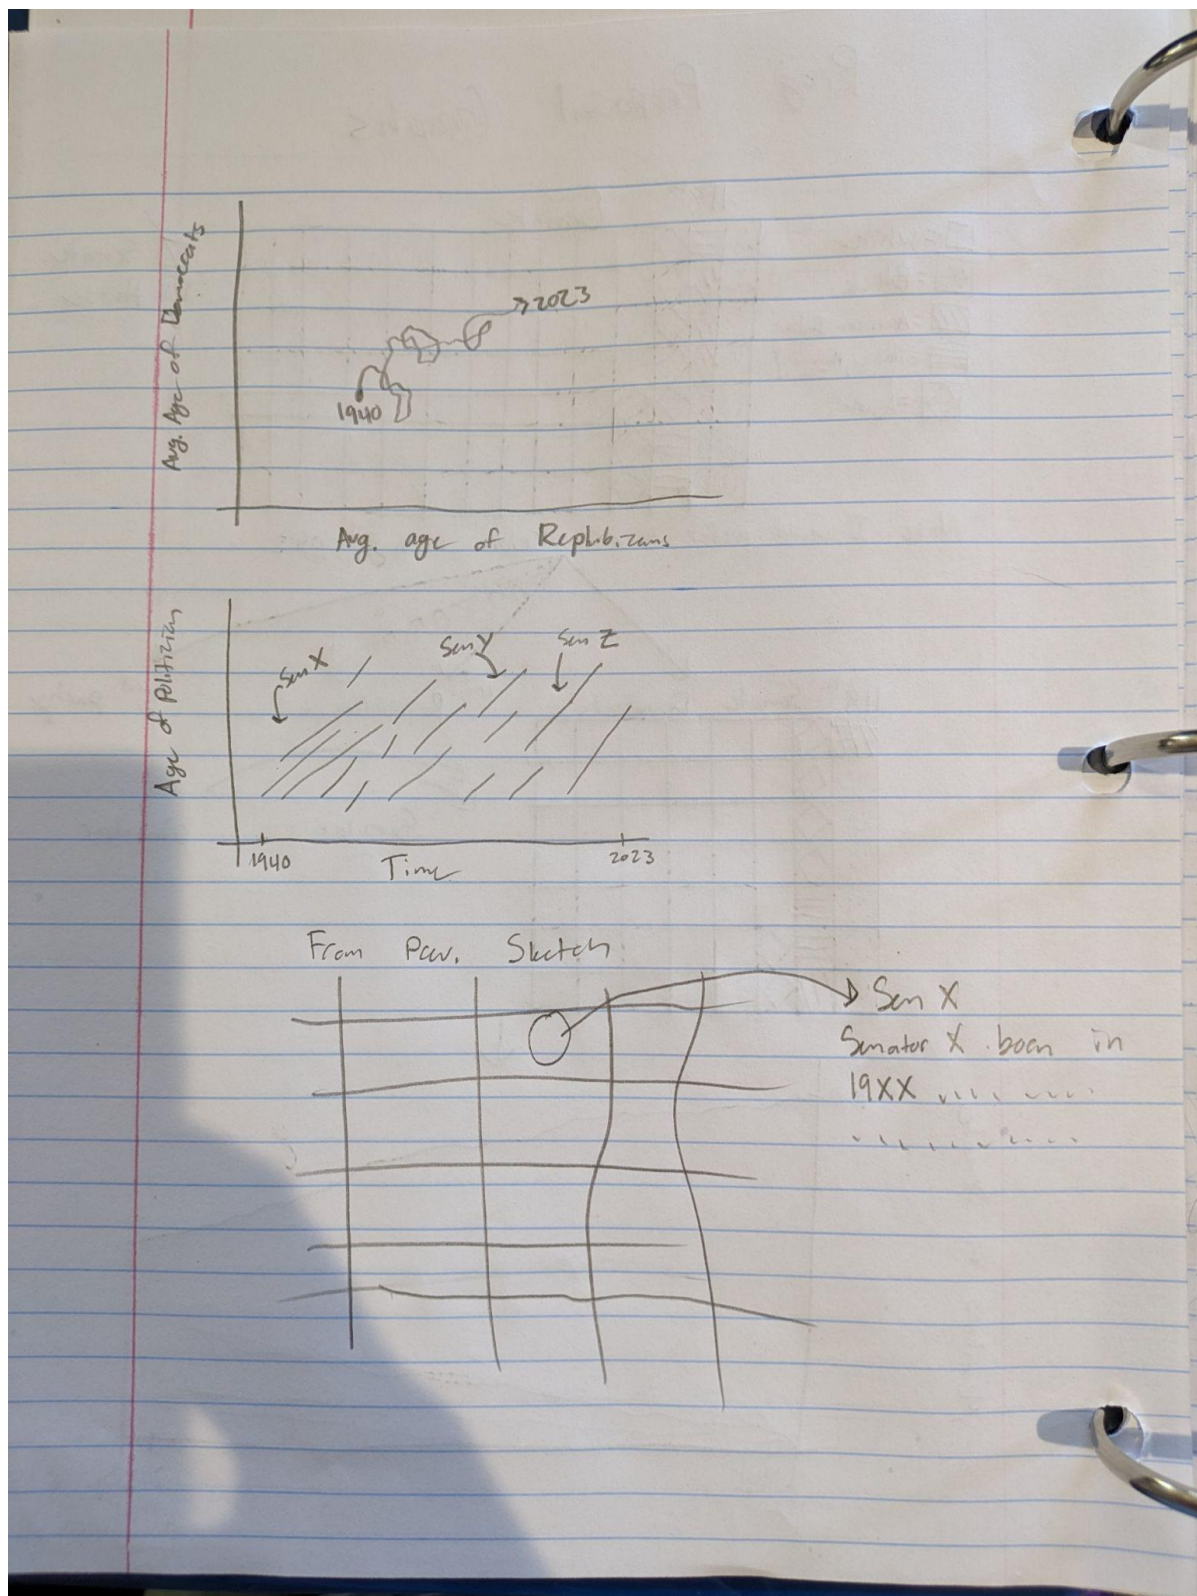 Avg. Age of Democrats
2023
1940
Avg. age of Replubicans
Age of Politician
Sen X
Sen Y
Sen Z
1940
Time
2023
From Prev. Sketch
Sen X
Senator X born in
19XX